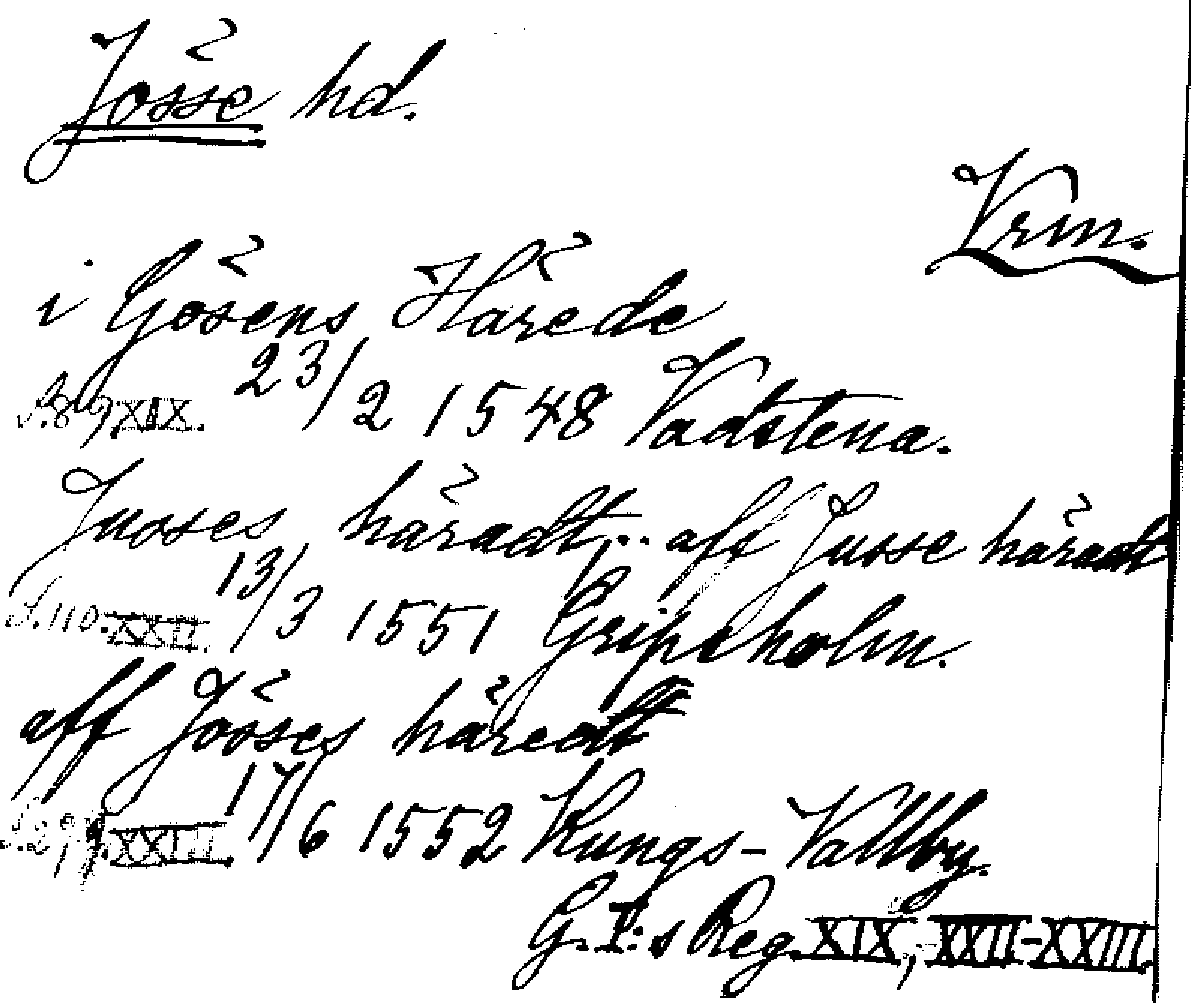 Jösse hd.
Vrm.
i Gösens Härede
S.89, XIX. 23/2 1548 Vadstena.
Jusses häradt... aff Jusse häradt
S.110. XXII. 13/3 1551 Gripsholm.
aff Jösses häredtt
XXIII. 17/6 1552 Kungs-Vallby.
G. I:s Reg. XIX, XXII-XXIII.